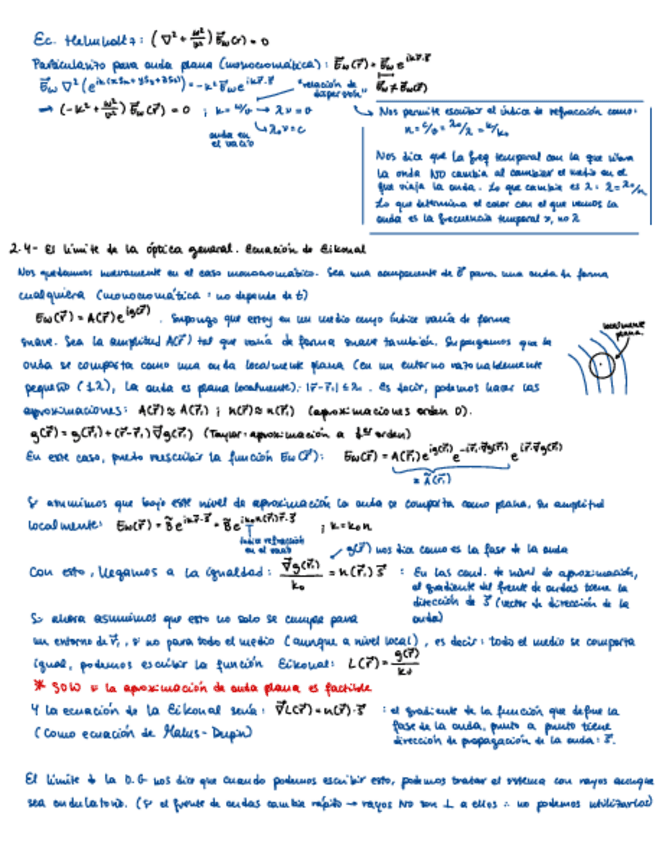 Ec. Helmholtz: (∇² + ω²/v²) E⃗ω(r) = 0
Particularizo para onda plana (monocromática): E⃗ω(r⃗) = E⃗ω e^{ik r⃗·s⃗}
E⃗ω ∇² (e^{ik(xsx+ysy+zsz)}) = -k² E⃗ω e^{ik r⃗·s⃗} "relación de dispersión" E⃗ω ≠ E⃗ω(r⃗)
→ (-k² + ω²/v²) E⃗ω(r⃗) = 0 ; k = ω/v → λν = v
↳ λ₀ν = c
onda en el vacío
Nos permite escribir el índice de refracción como:
n = c/v = λ₀/λ = k/k₀
Nos dice que la freq temporal con la que vibra
la onda NO cambia al cambiar el medio en el
que viaja la onda. Lo que cambia es λ: λ = λ₀/n
Lo que determina el color con el que vemos la
onda es la frecuencia temporal ν, no λ
2.4- El límite de la óptica general. Ecuación de Eikonal
Nos quedamos nuevamente en el caso monocromático. Sea una componente de E⃗ para una onda de forma
cualquiera (monocromática: no depende de t)
Eω(r⃗) = A(r⃗) e^{ig(r⃗)}. Supongo que estoy en un medio cuyo índice varía de forma
suave. Sea la amplitud A(r⃗) tal que varía de forma suave también. Supongamos que la
onda se comporta como una onda localmente plana (en un entorno razonablemente
pequeño (±λ), la onda es plana localmente): |r⃗-r⃗₁| ≤ λ. Es decir, podemos hacer las
localmente plana.
aproximaciones: A(r⃗) ≈ A(r⃗₁) ; n(r⃗) ≈ n(r⃗₁) (aproximaciones orden 0).
g(r⃗) = g(r⃗₁) + (r⃗-r⃗₁) ∇⃗g(r⃗₁) (Taylor: aproximación a 1er orden)
En este caso, puedo reescribir la función Eω(r⃗): Eω(r⃗) = A(r⃗₁) e^{ig(r⃗₁)} e^{-ir⃗₁·∇⃗g(r⃗₁)} e^{ir⃗·∇⃗g(r⃗₁)}
= Ã(r⃗₁)
Si asumimos que bajo este nivel de aproximación la onda se comporta como plana, su amplitud
localmente: Eω(r⃗) = B̃ e^{ik r⃗·s⃗} = B̃ e^{ik₀n(r⃗₁) r⃗·s⃗} ; k = k₀n
índice refracción en el
g(r⃗) nos dice como es la fase de la onda
Con esto, llegamos a la igualdad: ∇⃗g(r⃗₁)/k₀ = n(r⃗₁) s⃗ : En las cond. de nivel de aproximación,
el gradiente del frente de ondas tiene la
dirección de s⃗ (vector de dirección de la
onda)
Si ahora asumimos que esto no solo se cumple para
un entorno de r⃗₁, si no para todo el medio (aunque a nivel local), es decir: todo el medio se comporta
igual, podemos escribir la función Eikonal: L(r⃗) = g(r⃗)/k₀
* SOLO si la aproximación de onda plana es factible
Y la ecuación de la Eikonal sería: ∇⃗L(r⃗) = n(r⃗)·s⃗ : el gradiente de la función que define la
(Como ecuación de Malus-Dupin) fase de la onda, punto a punto tiene
dirección de propagación de la onda: s⃗.
El límite de la O.G nos dice que cuando podemos escribir esto, podemos tratar el sistema con rayos aunque
sea ondulatorio. (Si el frente de ondas cambia rápido → rayos NO son ⊥ a ellos ∴ no podemos utilizarlos)